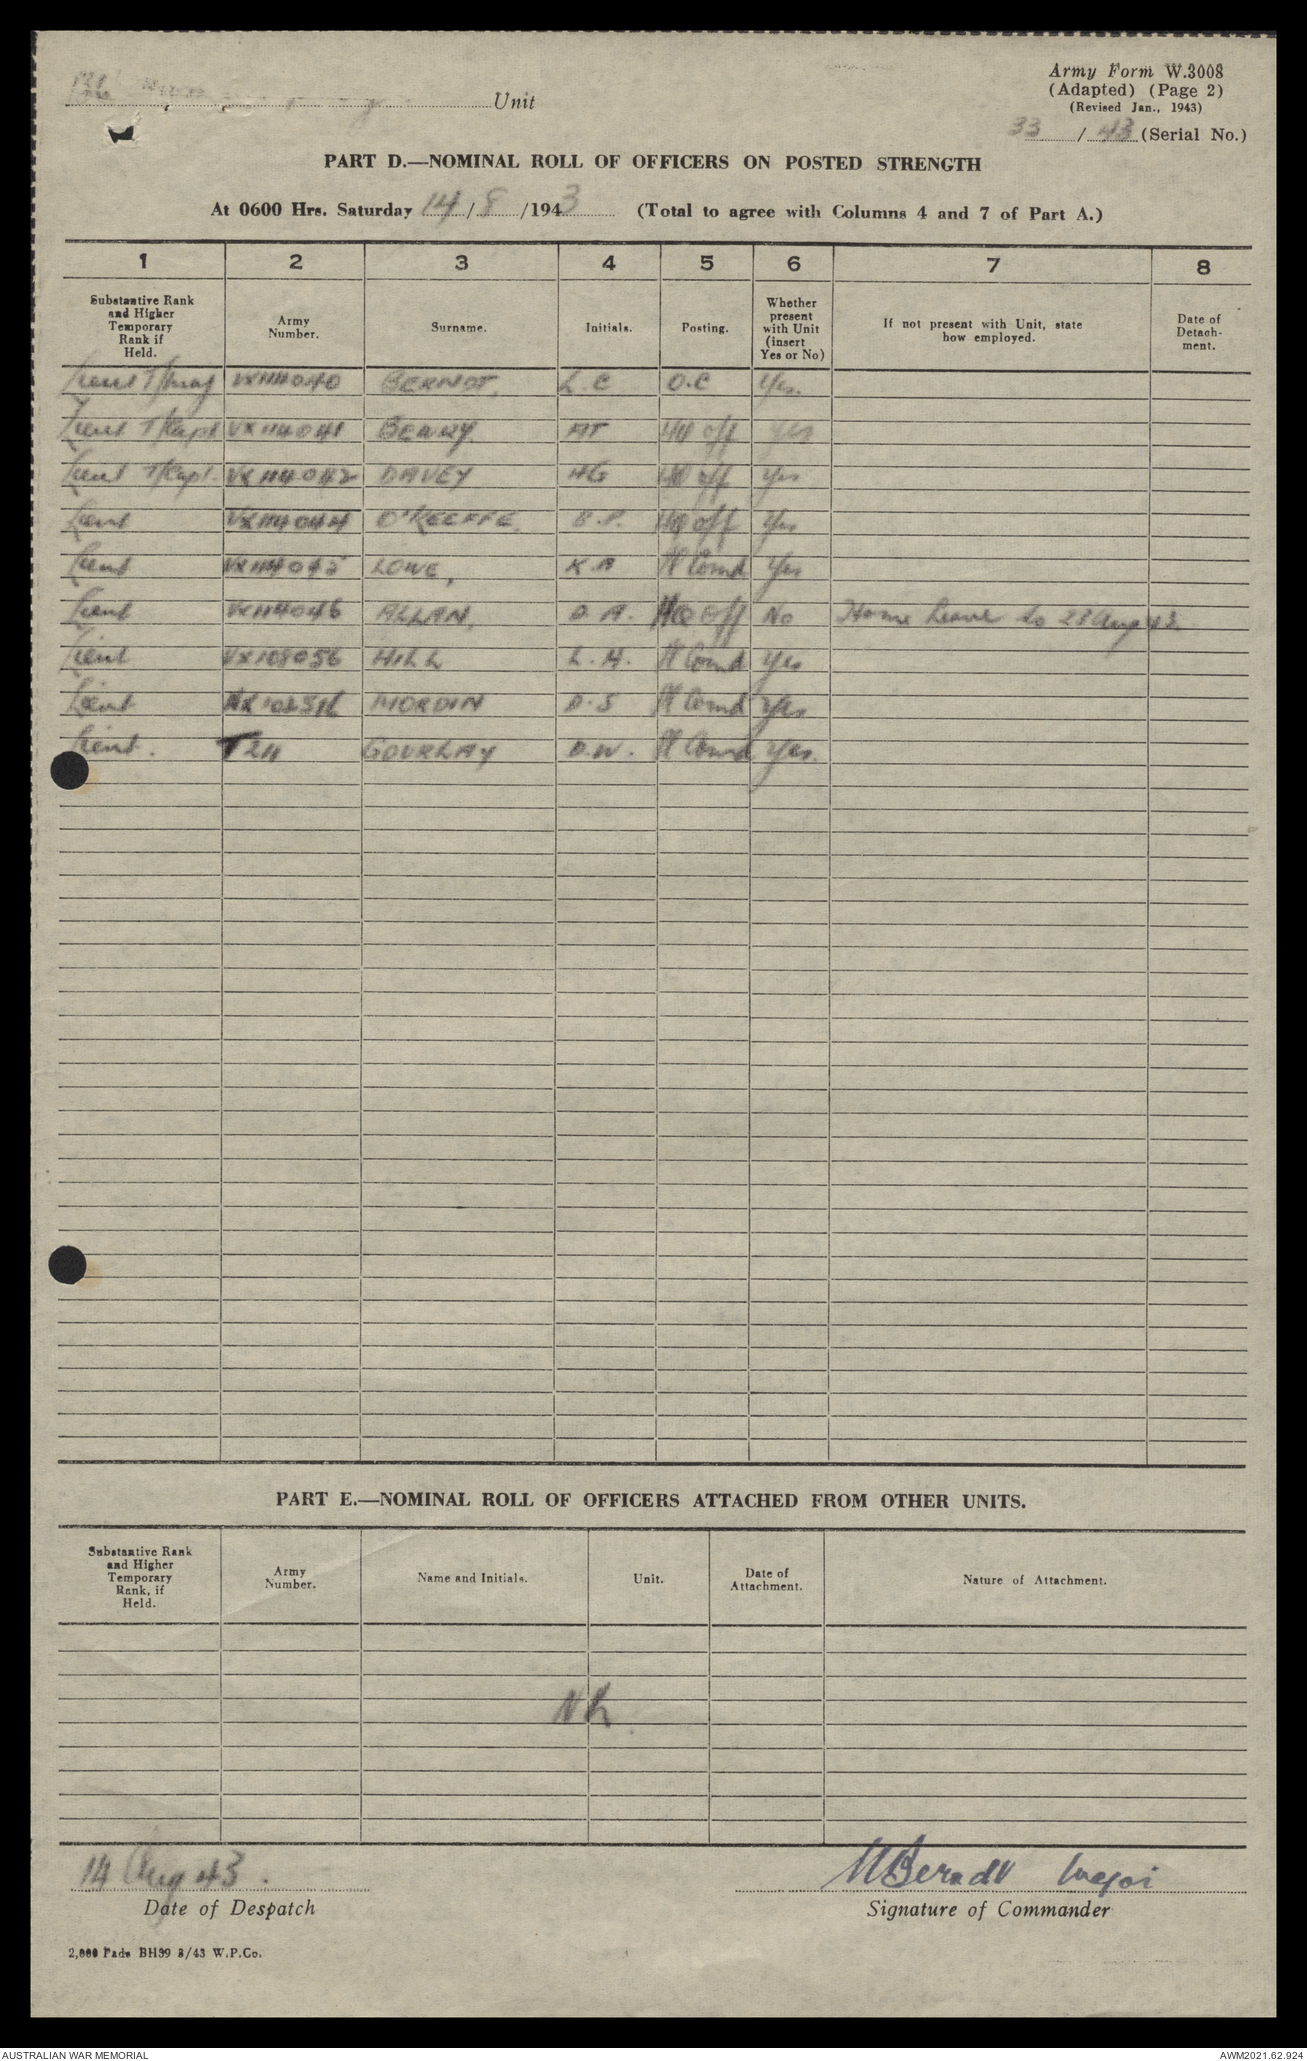 Army Form W.3008
(Adapted) (Page 2)
(Revised Jan., 1943)
Unit
33 / 43 (Serial No.)
PART D.—NOMINAL ROLL OF OFFICERS ON POSTED STRENGTH
At 0600 Hrs. Saturday 14 / 8 /1943 (Total to agree with Columns 4 and 7 of Part A.)
1 2 3 4 5 6 7 8
Substantive Rank and Higher Temporary Rank if Held. Army Number. Surname. Initials. Posting. Whether present with Unit (insert Yes or No) If not present with Unit, state how employed. Date of Detach-ment.
Lieut T/Maj VX114040 BERNDT. L.C O.C Yes.
Lieut T/Capt VX114041 BENRY AT HQ off yes
Lieut T/Capt. VX114042 DAVEY HG HQ off Yes
Lieut VX114044 O'KEEFFE. B.P. HQ off Yes
Lieut VX114045 LOWE, K.A Pl Comd Yes
Lieut VX114046 ALLAN, D.A. HQ Off No Home Leave to 28 Aug 43
Lieut VX108056 HILL L.H. Pl Comd Yes
Lieut MORDIN D.S Pl Comd Yes
Lieut. GOURLAY D.W. Pl Comd Yes.
PART E.—NOMINAL ROLL OF OFFICERS ATTACHED FROM OTHER UNITS.
Substantive Rank and Higher Temporary Rank, if Held. Army Number. Name and Initials. Unit. Date of Attachment. Nature of Attachment.
NIL
14 Aug 43. Berndt Major
Date of Despatch Signature of Commander
2,000 Pads BH39 3/43 W.P.Co.
AUSTRALIAN WAR MEMORIAL AWM2021.62.924